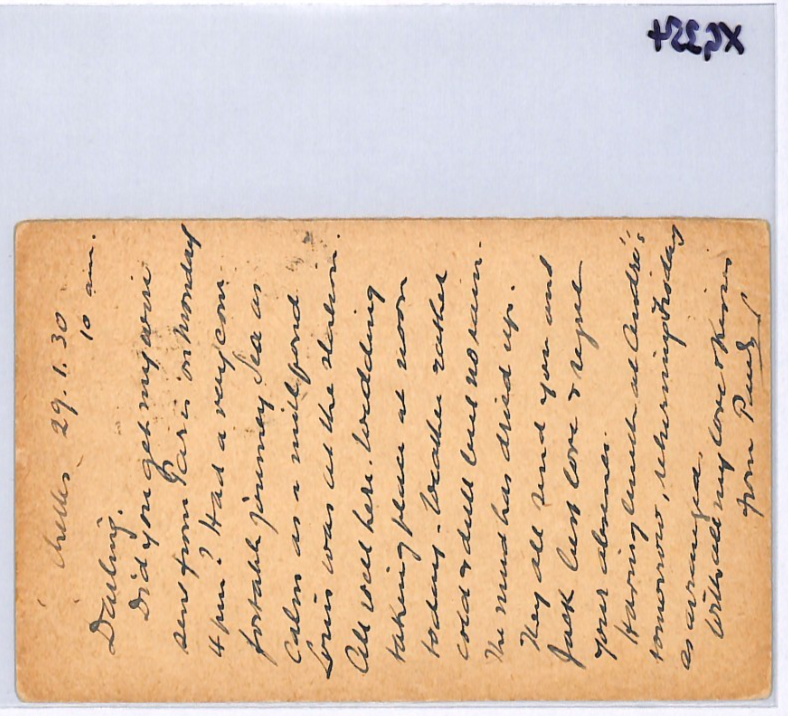 Chelles 29.1.30
10 am.
Darling.
Did you get my wire
sent from Paris on Monday
4 pm? Had a very com
fortable journey Sea as
calm as a millpond
Louis was at the station.
All well here. Wedding
taking place at noon
today. Weather rather
cold & dull but no rain.
The mud has dried up.
They all send you and
Jack best love & regret
your absence.
Having lunch at André's
tomorrow, returning Friday
as arranged.
With all my love & kisses
from Paul